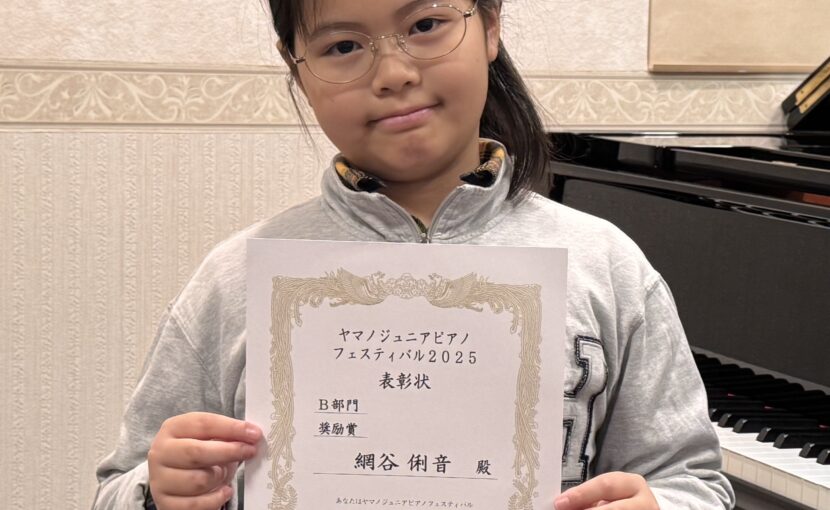 ヤマノジュニアピアノ
フェスティバル2025
表彰状
B部門
奨励賞
網谷 俐音 殿
あなたはヤマノジュニアピアノフェスティバル